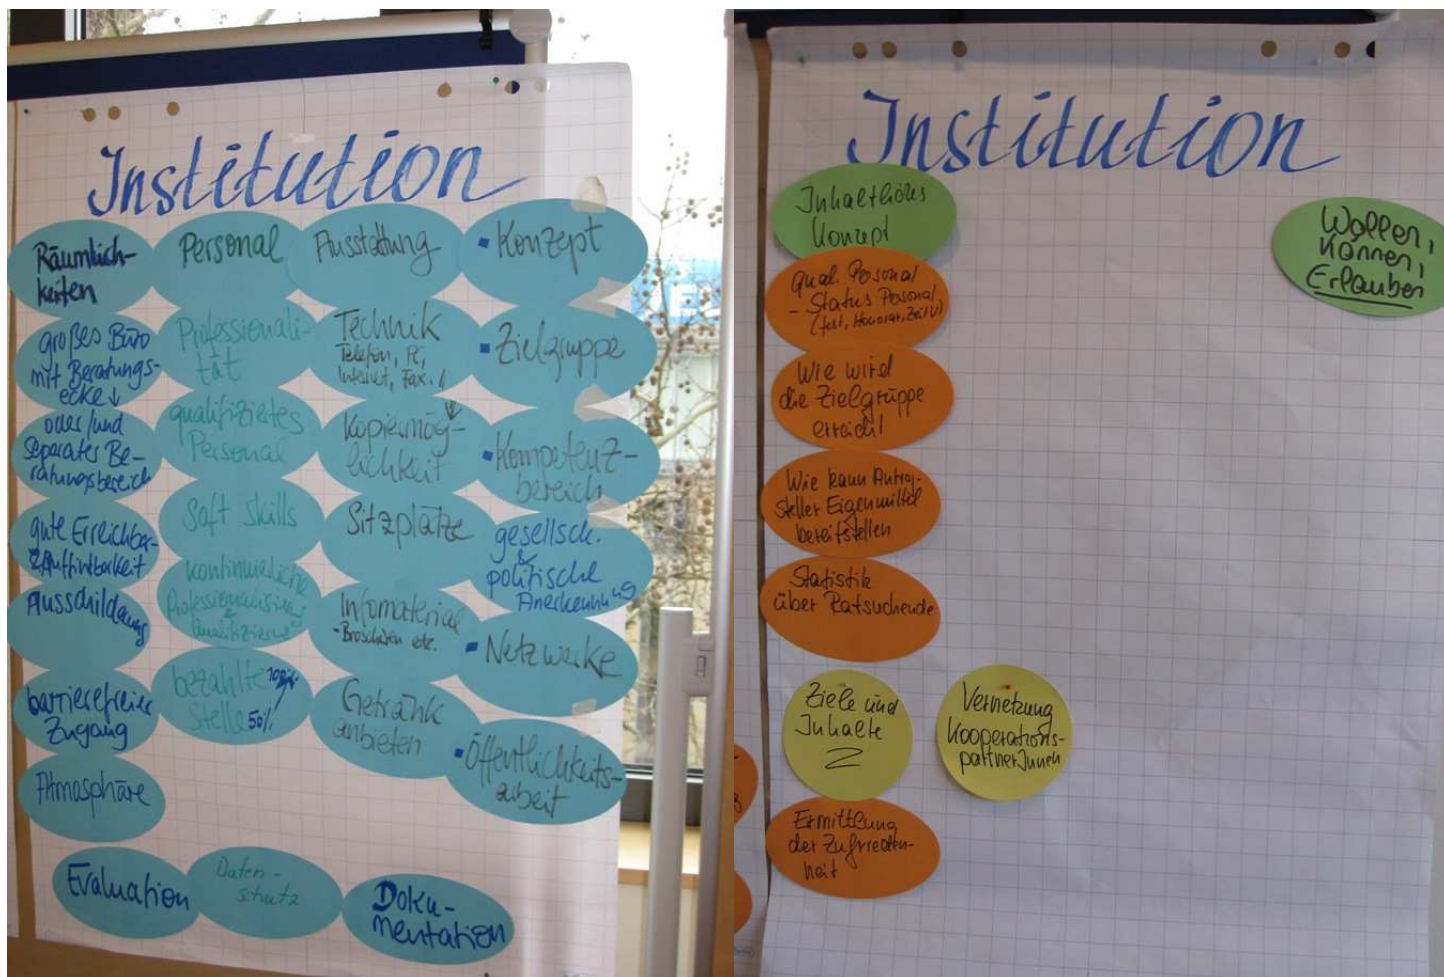 Institution
Räumlich-
keiten
großes Büro
mit Beratungs-
ecke ↓
oder/und
separates Be-
ratungsbereich
gute Erreichbar-
& Auffindbarkeit
Ausschilderung
barrierefreier
Zugang
Atmosphäre
Personal
Professionali-
tät
qualifiziertes
Personal
Soft Skills
kontinuierliche
Professionalisierung
&
bezahlte
Stelle 50%
Ausstattung
Technik
Telefon, PC,
Internet, Fax
Kopiermög-
lichkeit
Sitzplätze
Infomaterial
- Broschüren etc.
Getränk
anbieten
Konzept
Zielgruppe
Kompetenz-
bereich
gesellsch.
&
politische
Anerkennung
Netzwerke
Öffentlichkeits-
arbeit
Evaluation
Daten-
schutz
Doku-
mentation
Institution
Inhaltliches
Konzept
Qual. Personal
- Status Personal
(fest, Honorar, Zeitv)
Wie wird
die Zielgruppe
erreicht
Wie kann Antrag-
steller Eigenmittel
bereitstellen
Statistik
über Ratsuchende
Ziele und
Inhalte
Vernetzung
Kooperations-
partnerInnen
Ermittlung
der Zufrieden-
heit
Wollen,
Können,
Erlauben